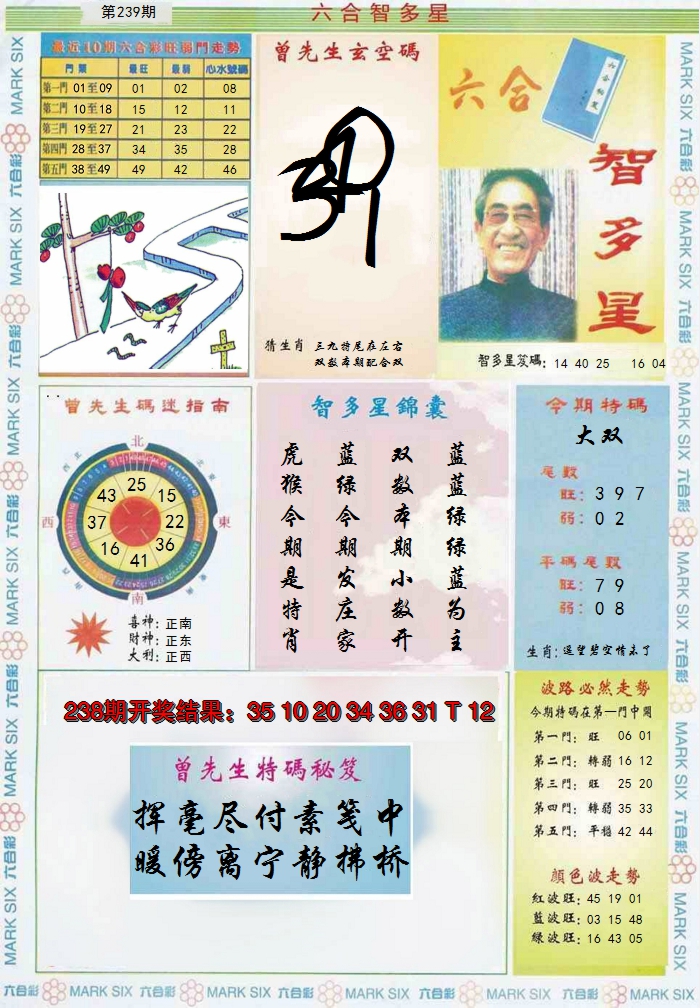 第239期
六合智多星
最近10期六合彩旺弱門走勢
門類 最旺 最弱 心水號碼
第一門 01至09 01 02 08
第二門 10至18 15 12 11
第三門 19至27 21 23 22
第四門 28至37 34 35 28
第五門 38至49 49 42 46
曾先生玄空碼
猜生肖 三九特尾在左右
双数本期配合双
六合
智多星
智多星笈碼: 14 40 25 16 04
曾先生碼迷指南
北
西
東
南
25
15
22
36
41
16
37
43
喜神: 正南
財神: 正东
大利: 正西
智多星錦囊
蓝蓝绿绿蓝为主
双数本期小数开
蓝绿今期发庄家
虎猴今期是特肖
今期特碼
大双
尾數
旺: 3 9 7
弱: 0 2
平碼尾數
旺: 7 9
弱: 0 8
生肖: 遥望碧空情未了
238期开奖结果: 35 10 20 34 36 31 T 12
曾先生特碼秘笈
挥毫尽付素笺中
暖傍离宁静拂桥
波路必然走勢
今期特碼在第一門中開
第一門: 旺 06 01
第二門: 轉弱 16 12
第三門: 旺 25 20
第四門: 轉弱 35 33
第五門: 平穩 42 44
顏色波走勢
紅波旺: 45 19 01
藍波旺: 03 15 48
綠波旺: 16 43 05
MARK SIX 六合彩